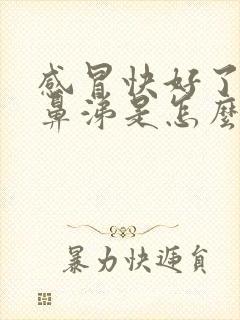 感冒快好了
鼻涕是怎麼
暴力快遞員